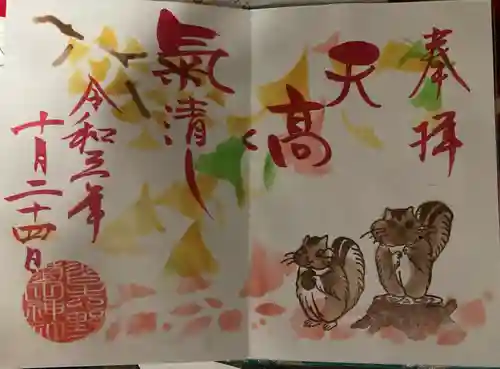 奉拝
天高く
氣清し
令和三年
十月二十四日